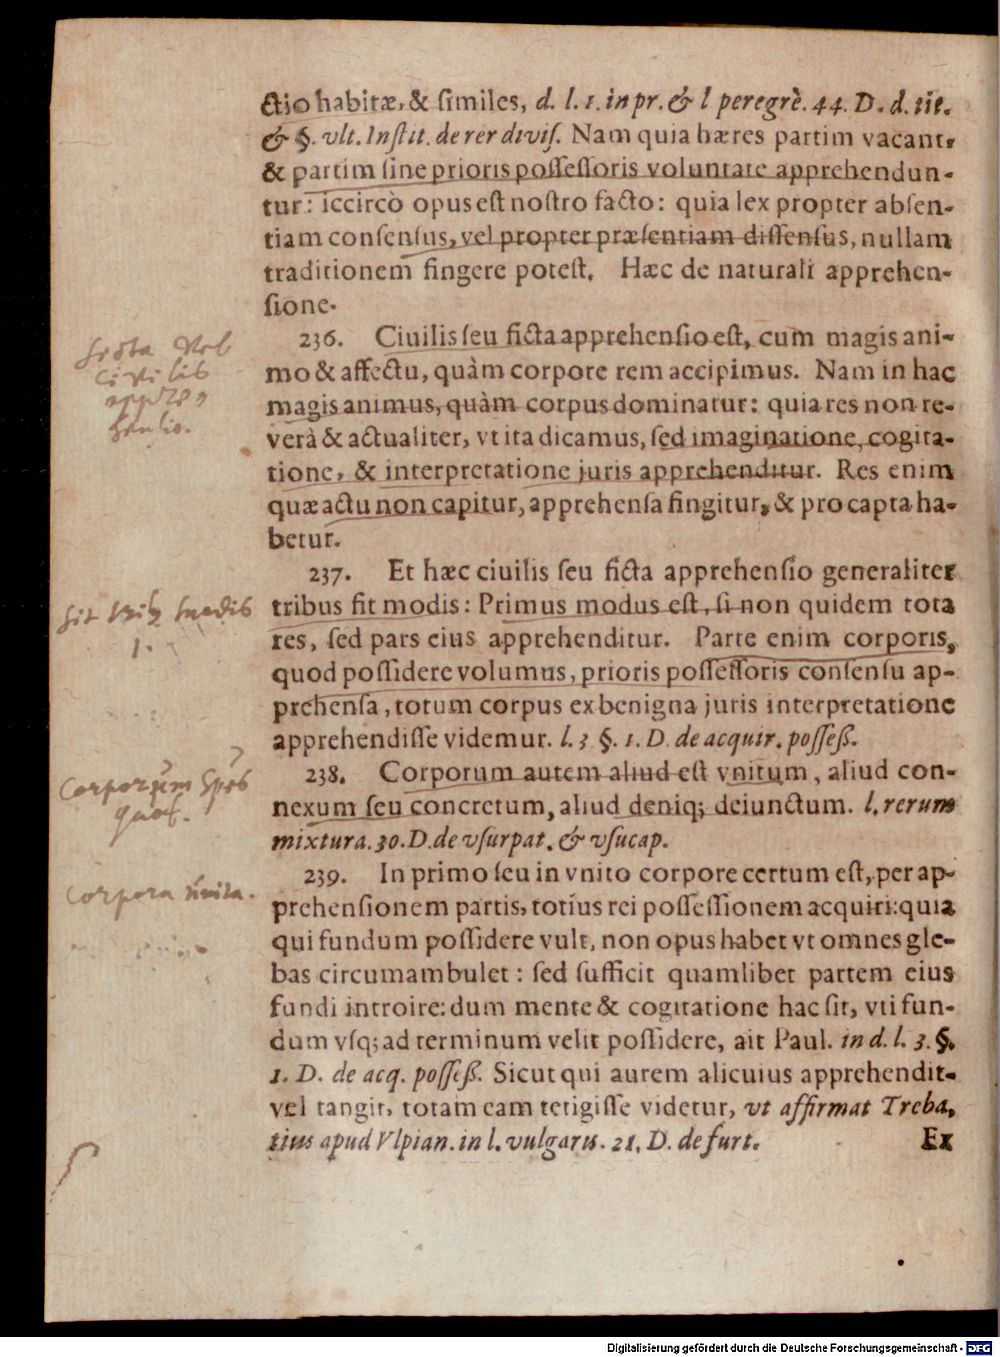 ctio habitæ, & ſimiles, d. l. 1. in pr. & l peregrè. 44. D. d. tit.
& §. vlt. Inſtit. de rer diviſ. Nam quia hæres partim vacant,
& partim ſine prioris poſſeſſoris voluntate apprehendun-
tur: iccircò opus eſt noſtro facto: quia lex propter abſen-
tiam conſenſus, vel propter præſentiam diſſenſus, nullam
traditionem fingere poteſt. Hæc de naturali apprehen-
ſione.
236. Ciuilis ſeu ficta apprehenſio eſt, cum magis ani-
mo & affectu, quàm corpore rem accipimus. Nam in hac
magis animus, quàm corpus dominatur: quia res non re-
verà & actualiter, vt ita dicamus, ſed imaginatione, cogita-
tione, & interpretatione juris apprehenditur. Res enim
quæ actu non capitur, apprehenſa fingitur, & pro capta ha-
betur.
ficta vel
civilis
appre-
henſio.
237. Et hæc ciuilis ſeu ficta apprehenſio generaliter
tribus fit modis: Primus modus eſt, ſi non quidem tota
res, ſed pars eius apprehenditur. Parte enim corporis,
quod poſſidere volumus, prioris poſſeſſoris conſenſu ap-
prehenſa, totum corpus ex benigna juris interpretatione
apprehendiſſe videmur. l. 3 §. 1. D. de acquir. poſſeß.
fit trib9 modis
1.
238. Corporum autem aliud eſt vnitum, aliud con-
nexum ſeu concretum, aliud deniq; deiunctum. l. rerum
mixtura. 30. D. de vſurpat. & vſucap.
Corporum ſpēs
quot.
239. In primo ſeu in vnito corpore certum eſt, per ap-
prehenſionem partis, totius rei poſſeſſionem acquiri: quia
qui fundum poſſidere vult, non opus habet vt omnes gle-
bas circumambulet: ſed ſufficit quamlibet partem eius
fundi introire: dum mente & cogitatione hac ſit, vti fun-
dum vſq; ad terminum velit poſſidere, ait Paul. in d. l. 3. §.
1. D. de acq. poſſeß. Sicut qui aurem alicuius apprehendit
vel tangit, totam eam tetigiſſe videtur, vt affirmat Treba,
tius apud Vlpian. in l. vulgaris. 21. D. de furt.
Corpora unita.
Ex
Digitalisierung gefördert durch die Deutsche Forschungsgemeinschaft - DFG